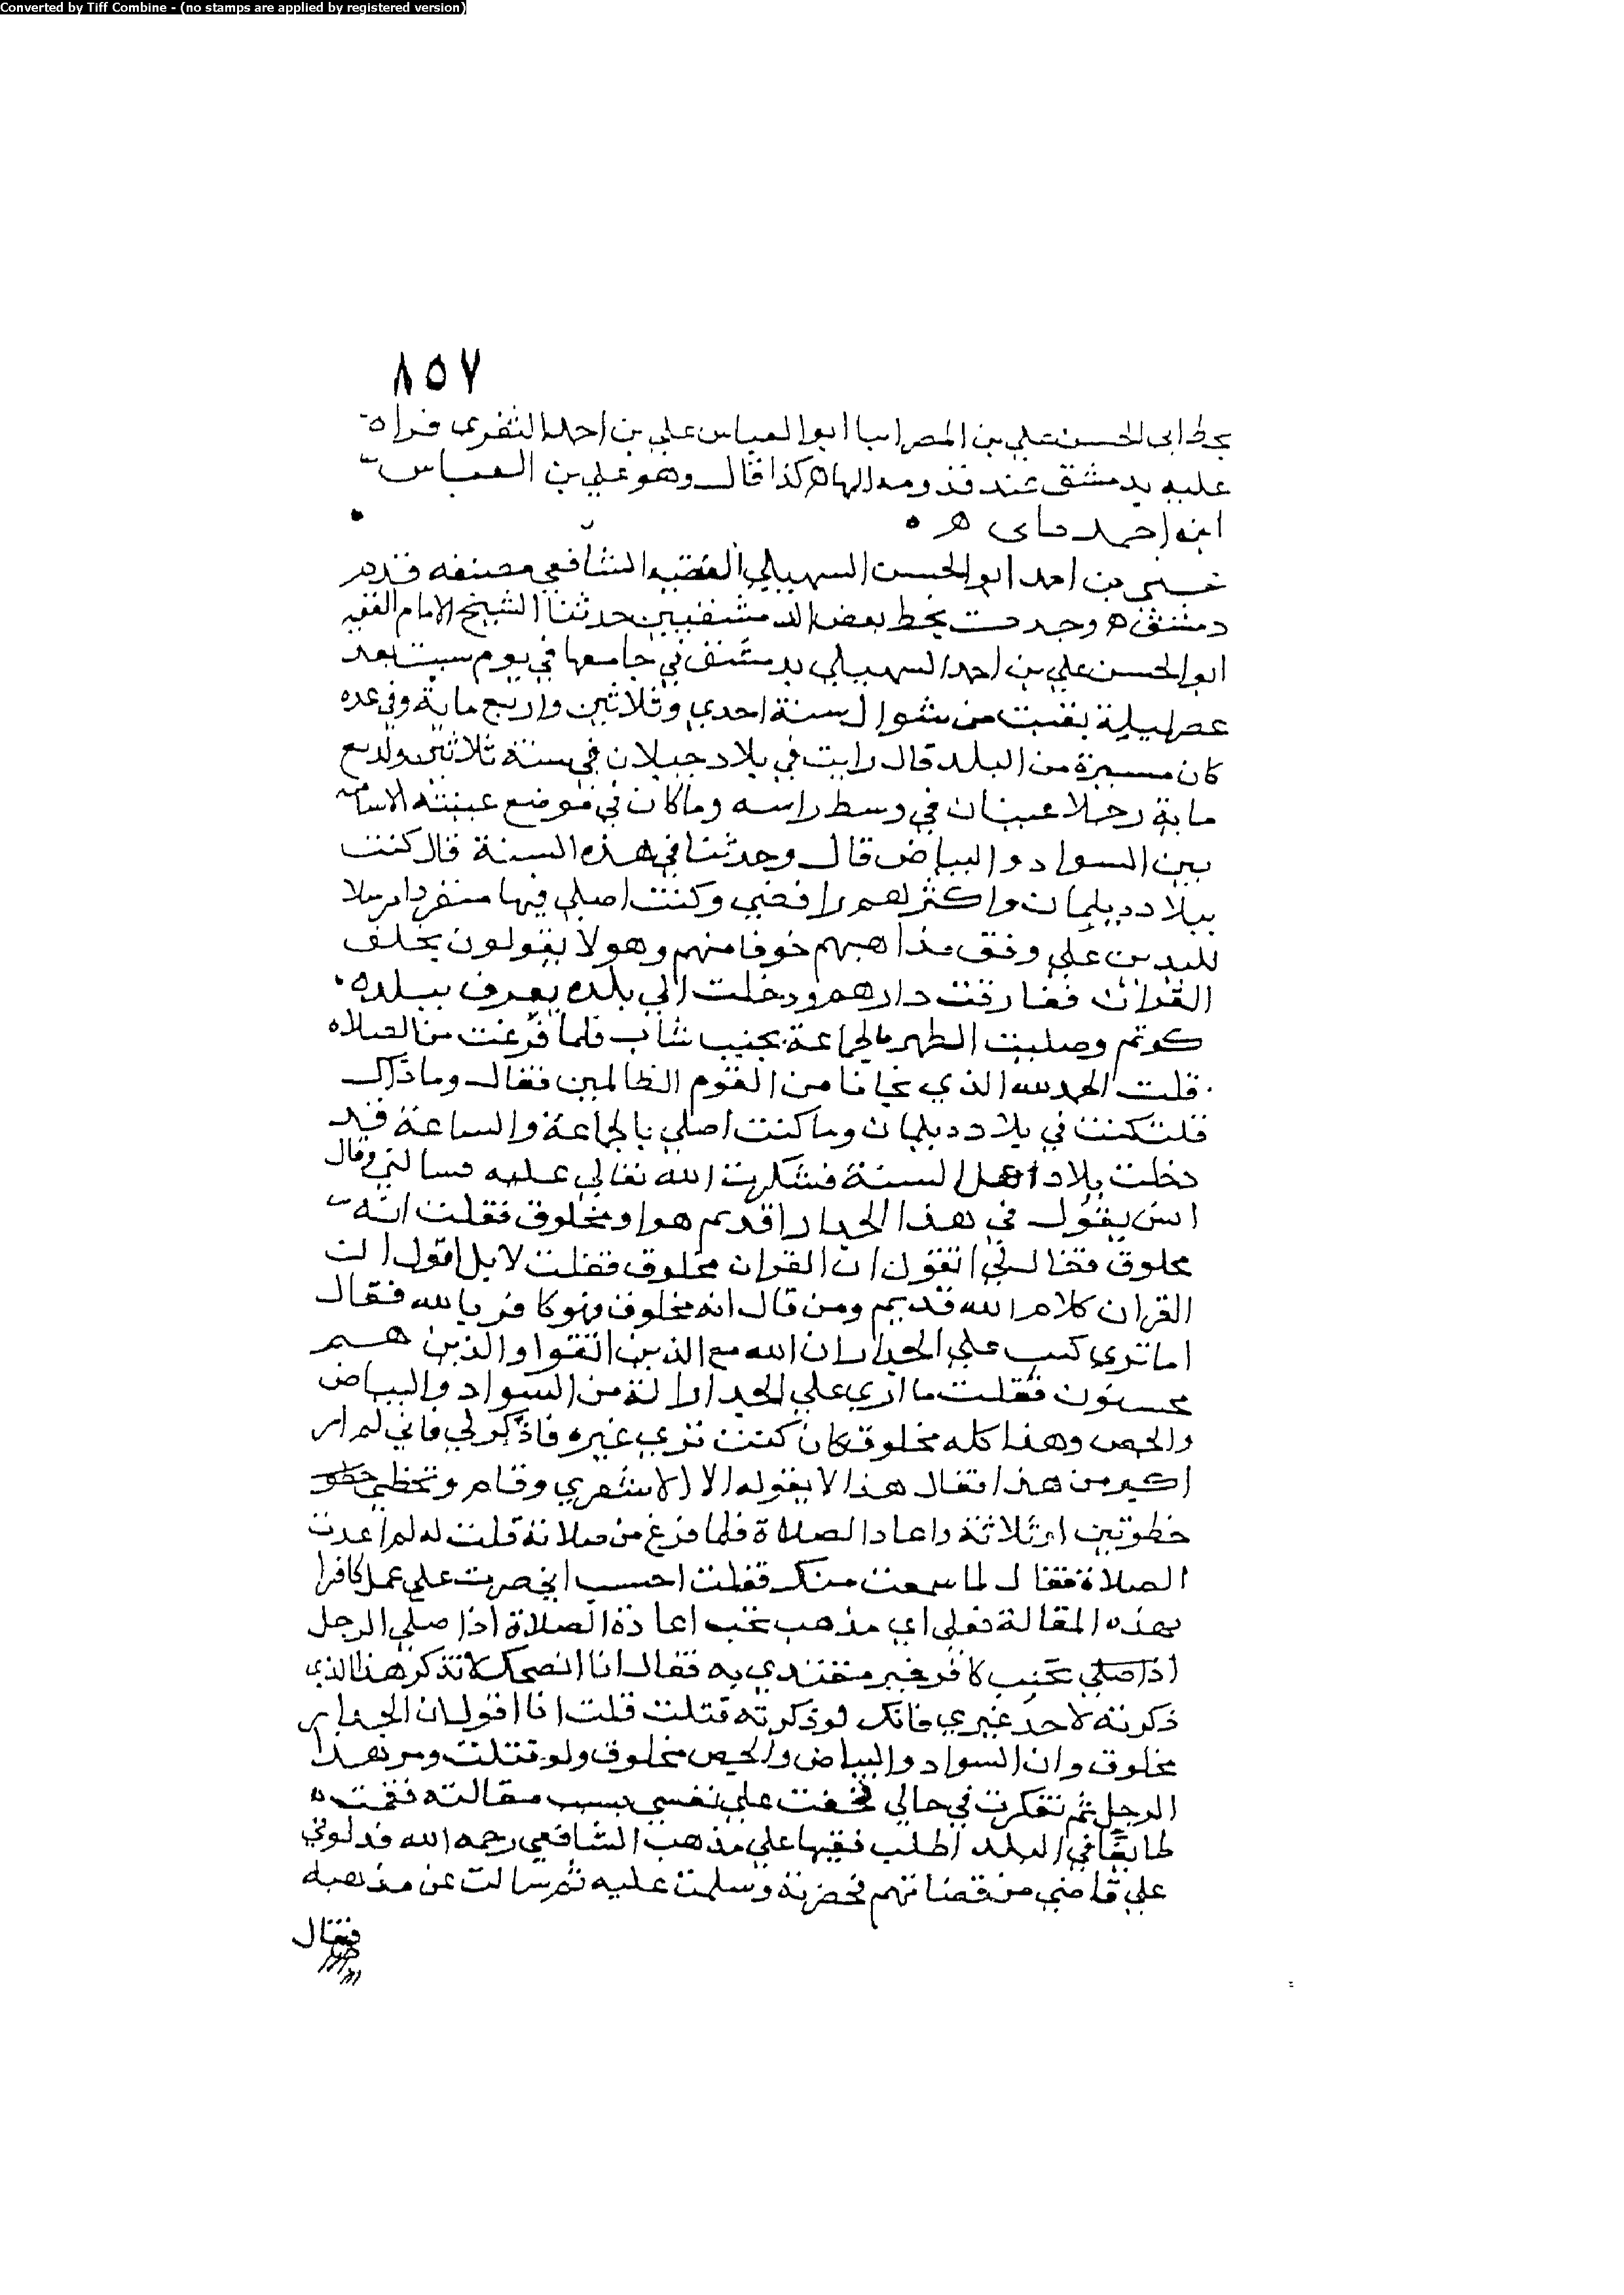 Converted by Tiff Combine - (no stamps are applied by registered version)
٨٥٧
بخط ابى الحسن علي بن ابو العباس علي بن احمد قراه
عليه بدمشق عند قدومه هكذا قال وهو علي بن العباس
ابن احمد ه
بن احمد ابو الحسن السهيلي الفقيه الشافعي مصنفه قدم
دمشق ه وجدت بخط بعض الدمشقيين حدثنا الشيخ الامام الفقيه
ابو الحسن علي بن احمد السهيلي بدمشق في جامعها في يوم سبت بعد
بقيت من شوال سنة احدي وثلاثين واربع ماية وفي عده
كان مسيرة من البلد قال رايت في بلاد جيلان في سنة ثلاثين واربع
ماية رجلا عينان في وسط راسه وما كان في موضع عينيه الا
بين السواد والبياض قال وحدثنا في هذه السنة قال كنت
ببلاد ديلمان واكثرهم رافضي وكنت اصلي فيها منفردا مرسلا
لليدين علي وفق مذاهبهم خوفا منهم وهولا يقولون بخلق
القران ففارقت دارهم ودخلت الي بلده يعرف ببلده
كوتم وصليت الظهر بالجماعة بجنب شاب فلما فرغت من الصلاه
قلت الحمد لله الذي نجانا من القوم الظالمين فقال وما ذاك
قلت كنت في بلاد ديلمان وما كنت اصلي بالجماعة والساعة قد
دخلت بلاد اهل السنة فشكرت الله تعالي عليه فسالني وقال
ايش يقول في هذا الجدار اقديم هو او مخلوق فقلت انه
مخلوق فقال لي اتقول ان القران مخلوق فقلت لا بل اقول ان
القران كلام الله قديم ومن قال انه مخلوق فهو كافر بالله فقال
اما تري كتب علي الجدار ان الله مع الذين اتقوا والذين هم
محسنون فقلت ما اري علي الجدار الة من السواد والبياض
والجص وهذا كله مخلوق فان كنت تري غيره فاذكر لي فاني لم ار
اكثر من هذا فقال هذا لا يقوله الا الاشعري وقام وتخطي
خطوتين او ثلاثة واعاد الصلاة فلما فرغ من صلاته قلت له لم اعدت
الصلاة فقال لما سمعت منك فقلت احسب اني صرت علي عملك كافرا
بهذه المقالة فعلى اي مذهب تجب اعادة الصلاة اذا صلي الرجل
اذا صلي بجنب كافر غير مقتدي به فقال انا انصحك لا تذكر هذا الذي
ذكرته لاحد غيري فانك لو ذكرته قتلت قلت انا اقول ان الجدار
مخلوق وان السواد والبياض والجص مخلوق ولو قتلت ومر هذا
الرجل ثم تفكرت في حالي فخفت علي نفسي بسبب مقالته فقمت
طايفا في البلد اطلب فقيها علي مذهب الشافعي رحمه الله فدلوني
علي قاضي من قضاتهم فحضرته وسلمت عليه ثم سالت عن مذهبه
فقال